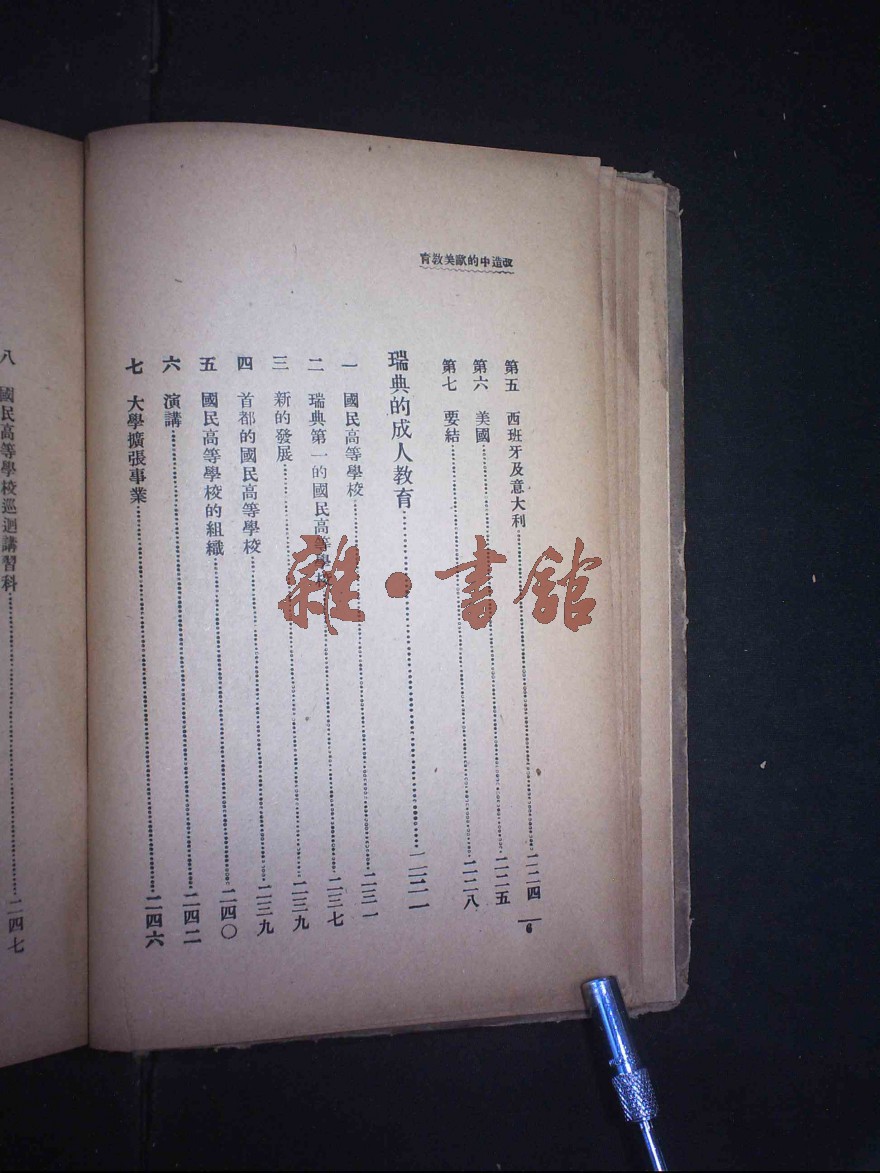 改造中的歐美教育
第五　西班牙及意大利……二二四
第六　美國……二二五
第七　要結……二二八
瑞典的成人教育……二三一
一　國民高等學校……二三一
二　瑞典第一的國民高等學校……二三七
三　新的發展……二三九
四　首都的國民高等學校……二三九
五　國民高等學校的組織……二四〇
六　演講……二四二
七　大學擴張事業……二四六
6
八　國民高等學校巡迴講習科……二四七
雜·書館